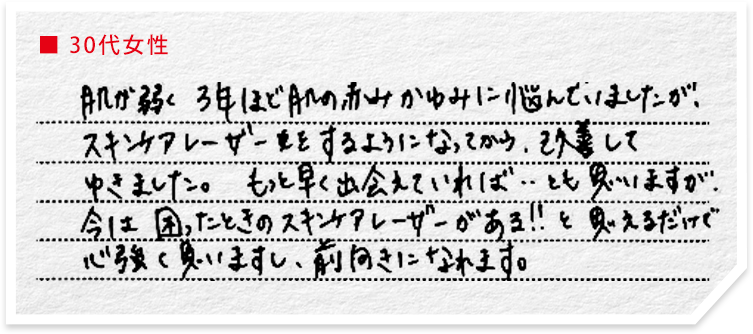 ■ 30代女性
肌が弱く 3年ほど肌の赤みかゆみに悩んでいましたが、
スキンケアレーザーをするようになってから、改善して
ゆきました。 もっと早く出会えていれば‥とも思いますが、
今は困ったときのスキンケアレーザーがある!! と思えるだけで
心強く思いますし、前向きになれます。